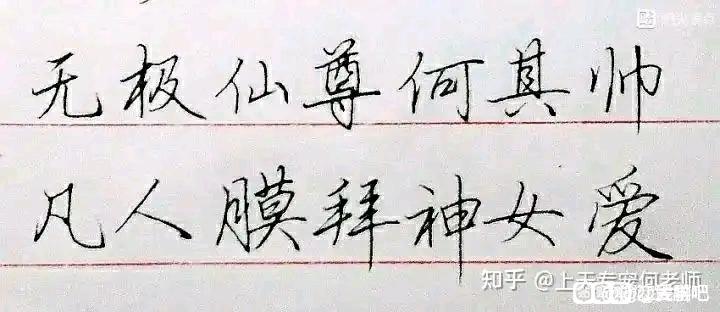 无极仙尊何其帅
凡人膜拜神女爱
知乎 @上天专宠何老师